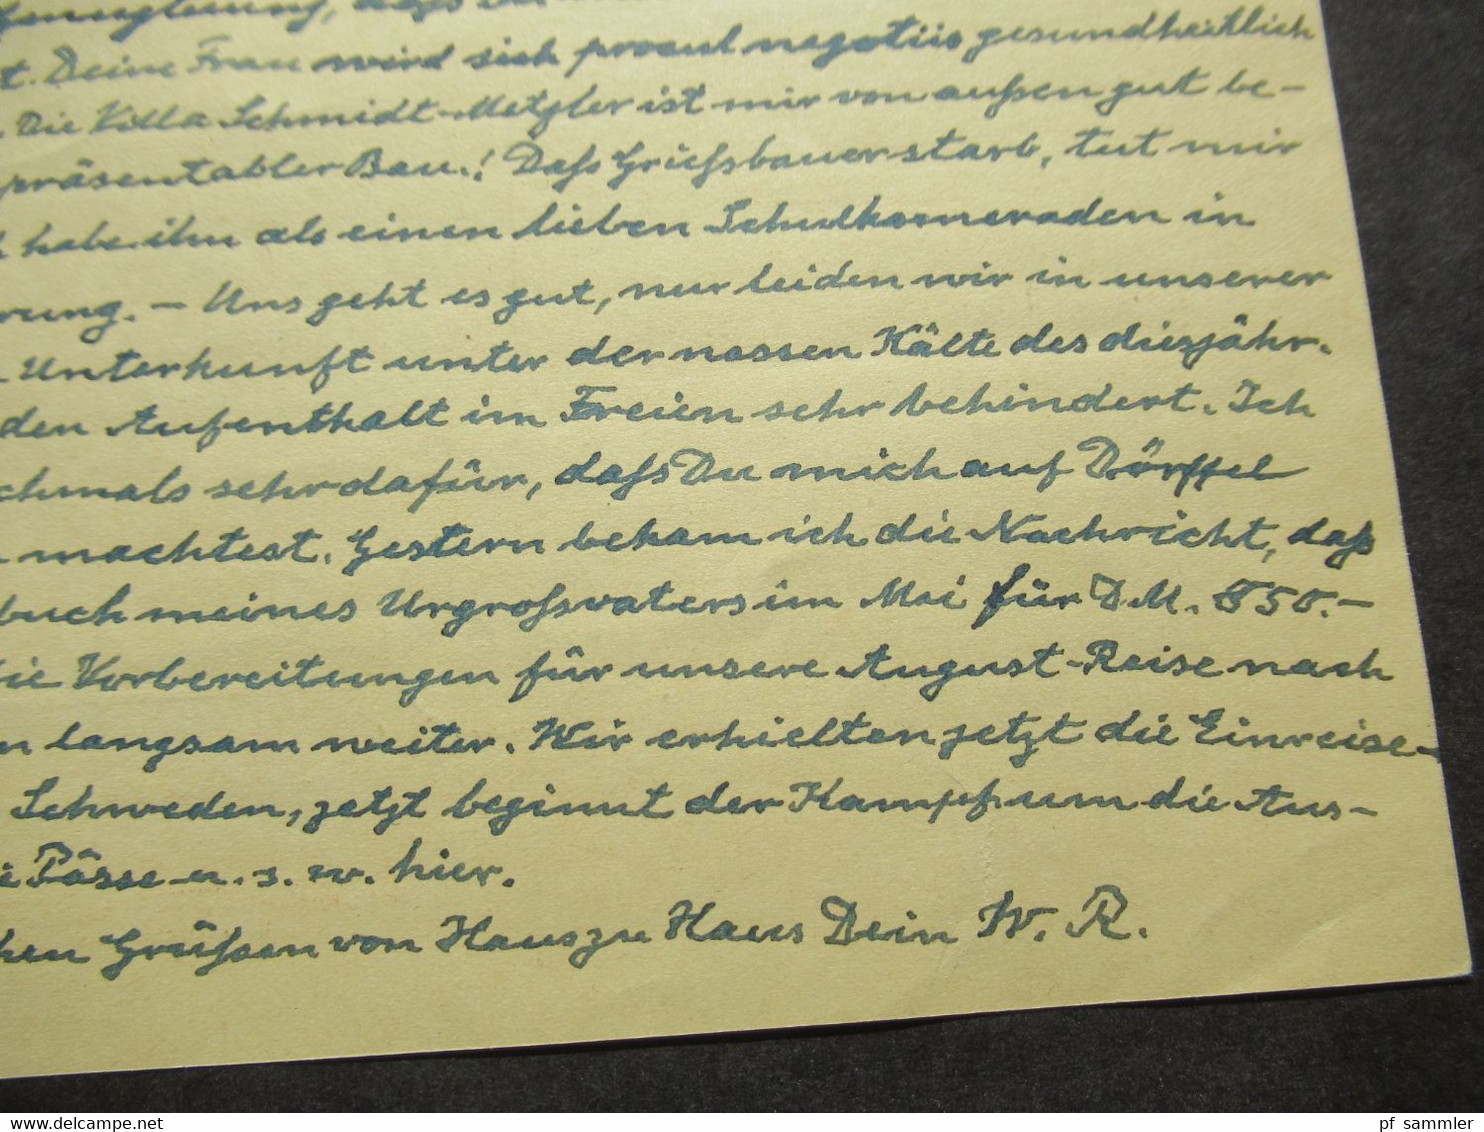 t. Deine Frau wird sich procul negotiis gesundheitlich
Die Villa Schmidt-Metzler ist mir von außen gut be-
präsentabler Bau.! Daß Grießbauer starb, tut mir
habe ihn als einen lieben Schulkameraden in
rung. – Uns geht es gut, nur leiden wir in unserer
Unterkunft unter der nassen Kälte des diesjähr.
den Aufenthalt im Freien sehr behindert. Ich
chmals sehr dafür, daß Du mich auf Dörffel
machtest. Gestern bekam ich die Nachricht, daß
buch meines Urgroßvaters im Mai für DM. 550.–
die Vorbereitungen für unsere August-Reise nach
n langsam weiter. Wir erhielten jetzt die Einreise-
Schweden, jetzt beginnt der Kampf um die Aus-
Pässe u. s. w. hier.
chen Grüßen von Haus zu Haus Dein W. R.
pf sammler